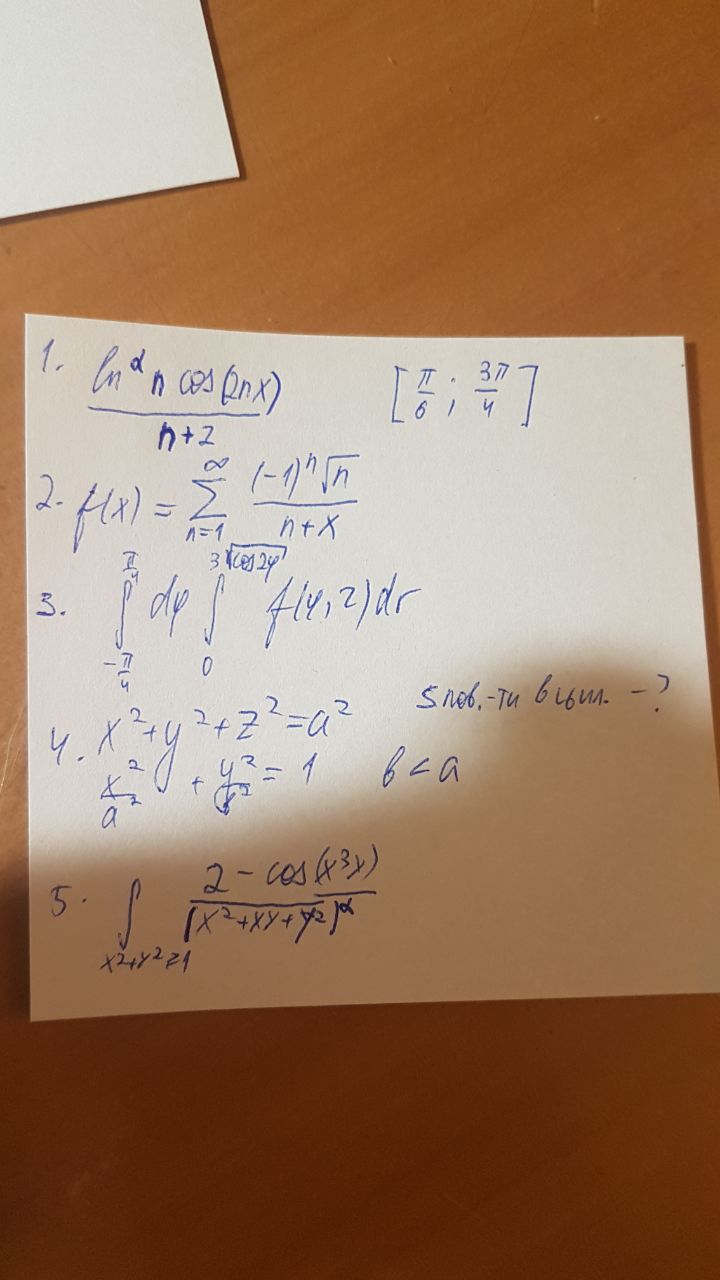 1. ln^α n cos(2nx) / n+2 [π/6 ; 3π/4]
2. f(x) = ∑_{n=1}^{∞} (-1)^n √n / n+x
3. ∫_{-π/4}^{π/4} dφ ∫_0^{3√cos2φ} f(φ,r) dr
4. x² + y² + z² = a² S пов.-ти в цил. - ?
x²/a² + y²/b² = 1 b < a
5. ∫_{x²+y²≥1} 2 - cos(x³y) / (x²+xy+y²)^α